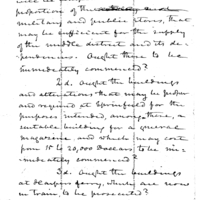 proportions of the
metary and public stores, that
may be sufficient for the supply
of the middle district and its de-
pendences. Ought there to be
immediately commenced?
2d. Ought the buildings
and alterations that may be proper
and required at Springfield for the
purposes intended, among them, a
suitable building for a general
magazine and which may cost
from 15 to 20,000 Dollars to be im-
mediately commenced?
3d. Ought the buildings
at Harpers ferry, which are now
in train, to be prosecuted?